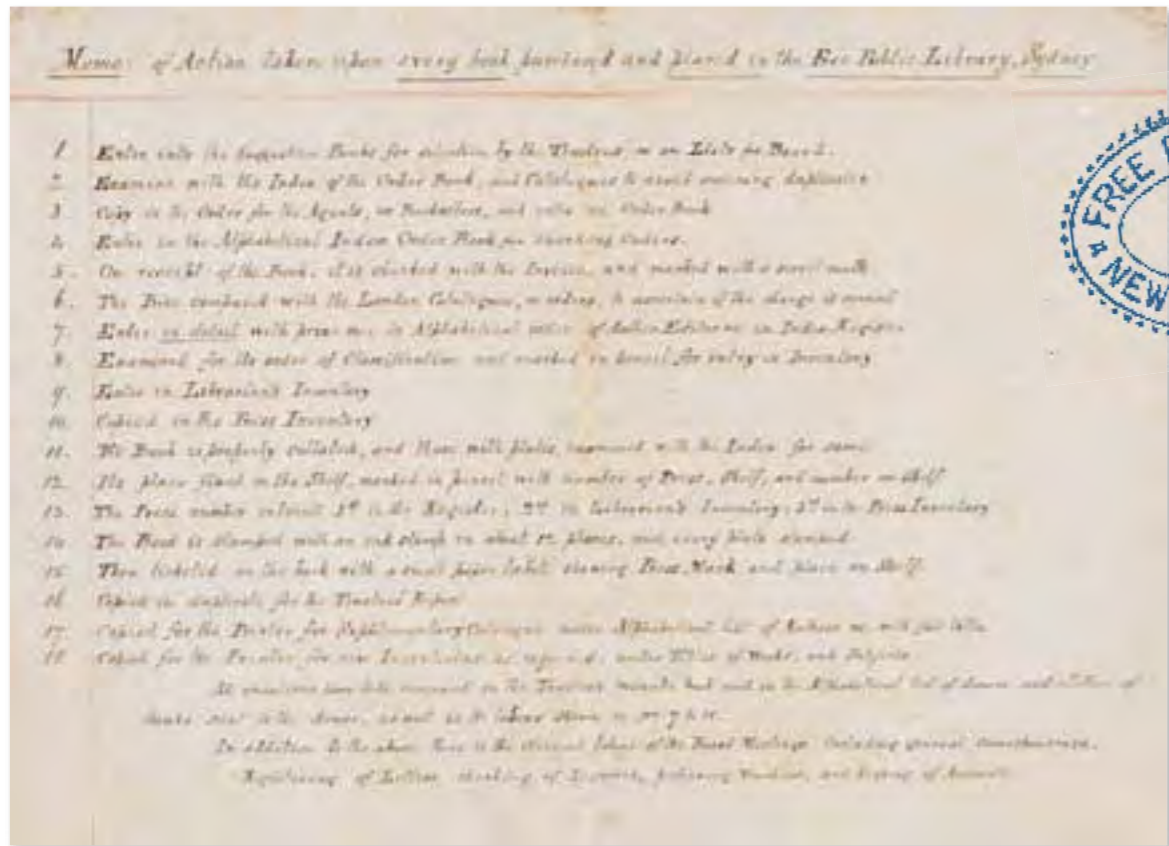 Memo: of Action taken upon every book purchased and placed in the Free Public Library, Sydney
1 Enter into the Suggestion Books for selection by the Trustees or on Lists for Board.
2. Examine with the Index of the Order Book, and Catalogues to avoid ordering duplicates
3. Copy in the Order for the Agents, or Booksellers, and enter in Order Book
4. Enter in the Alphabetical Index Order Book for checking Orders.
5. On receipt of the Book, it is checked with the Invoice, and marked with a mark
6. The Price compared with the London Catalogues, to ascertain if the charge is correct
7. Enter in detail with prices in Alphabetical order of Author in Index Register
8. Examined for its order of Classification and marked in pencil for entry in Inventory
9. Enter in Librarian's Inventory
10. Copied in the Press Inventory
11. The Book is properly collated, and those with plates, examined with the Index for same
12. The place fixed on the Shelf, marked in pencil with number of Press, Shelf, and number on Shelf
13. The Press number entered 1st in the Register; 2nd in Librarian's Inventory; 3rd in the Press Inventory
14. The Book is stamped with an ink stamp in about 12 places, and every plate stamped
15. Then ticketed on the back with a small paper label showing Press Mark and place on Shelf.
16 Copied in duplicate for the Trustees' Report
17. Copied for the Printer for Supplementary Catalogue under Alphabetical list of Authors with full title
18. Copied for the Printer for under Titles of Works, and Subjects
in the Alphabetical list of and
Books sent to the as in Nos 7 to 18.
In addition to the above there is the labour of the Board Meetings including general Correspondence,
Registering of Letters checking of Accounts, preparing Vouchers, and keeping of Accounts
FREE
NEW